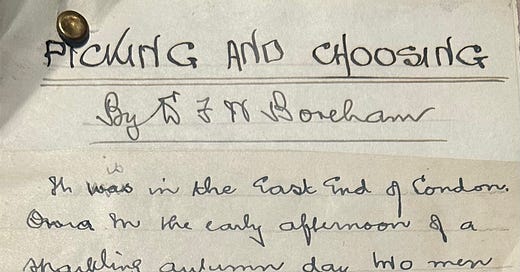 PICKING AND CHOOSING
By F W Boreham
is
It was in the East End of London.
in the early afternoon of a
sparkling autumn day two men